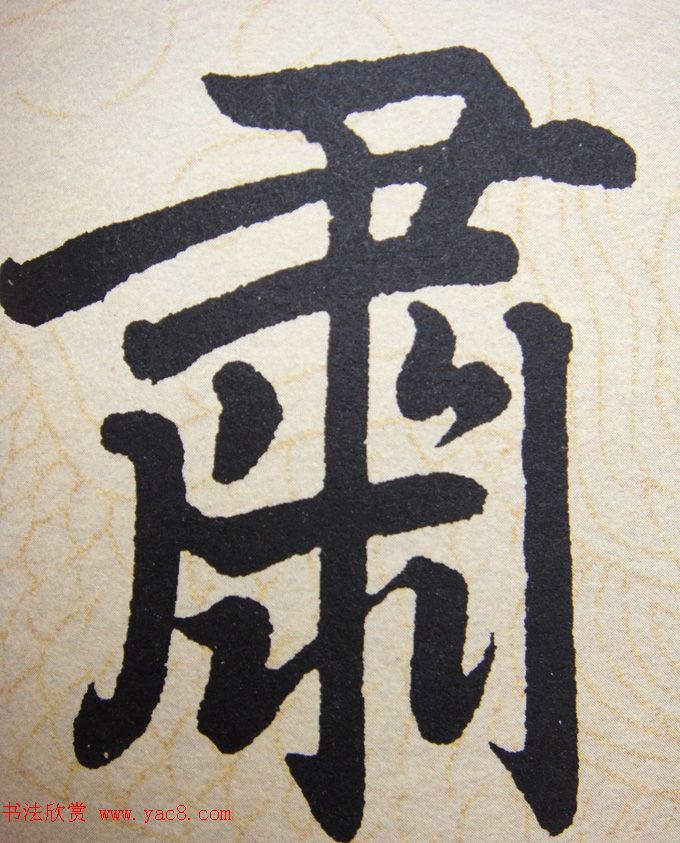 肅
书法欣赏 www.yac8.com